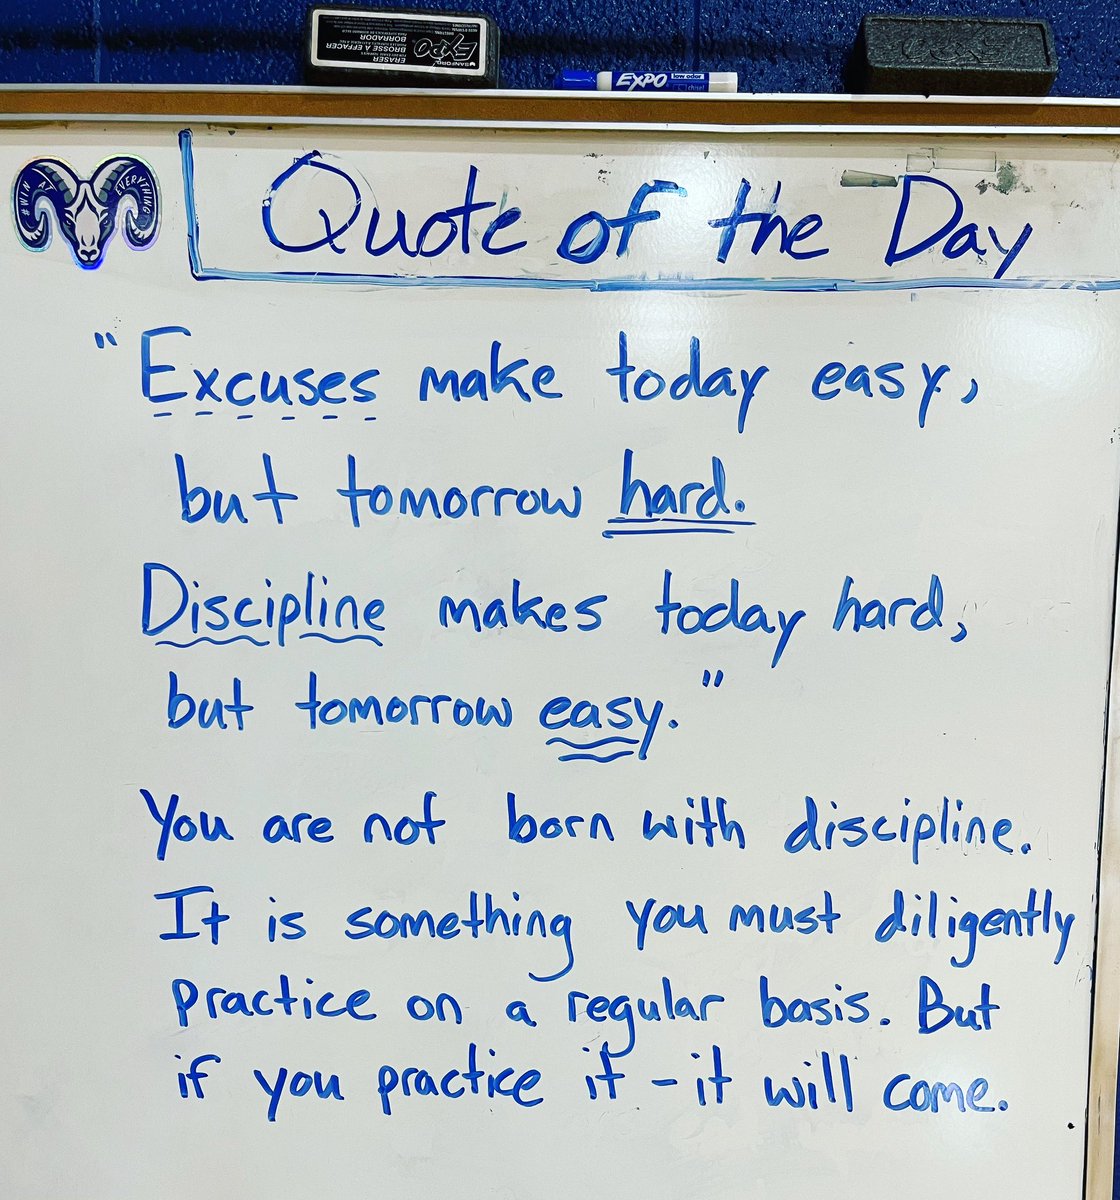 ERASER
BROSSE À EFFACER
BORRADOR
EXPO
SANFORD
EXPO low odor
chisel
EXPO
#WIN EVERYTHING
Quote of the Day
"Excuses make today easy,
but tomorrow hard.
Discipline makes today hard,
but tomorrow easy."
You are not born with discipline.
It is something you must diligently
practice on a regular basis. But
if you practice it - it will come.